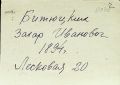 Битюцких
Захар Иванович
1894г.
Лесковая 20